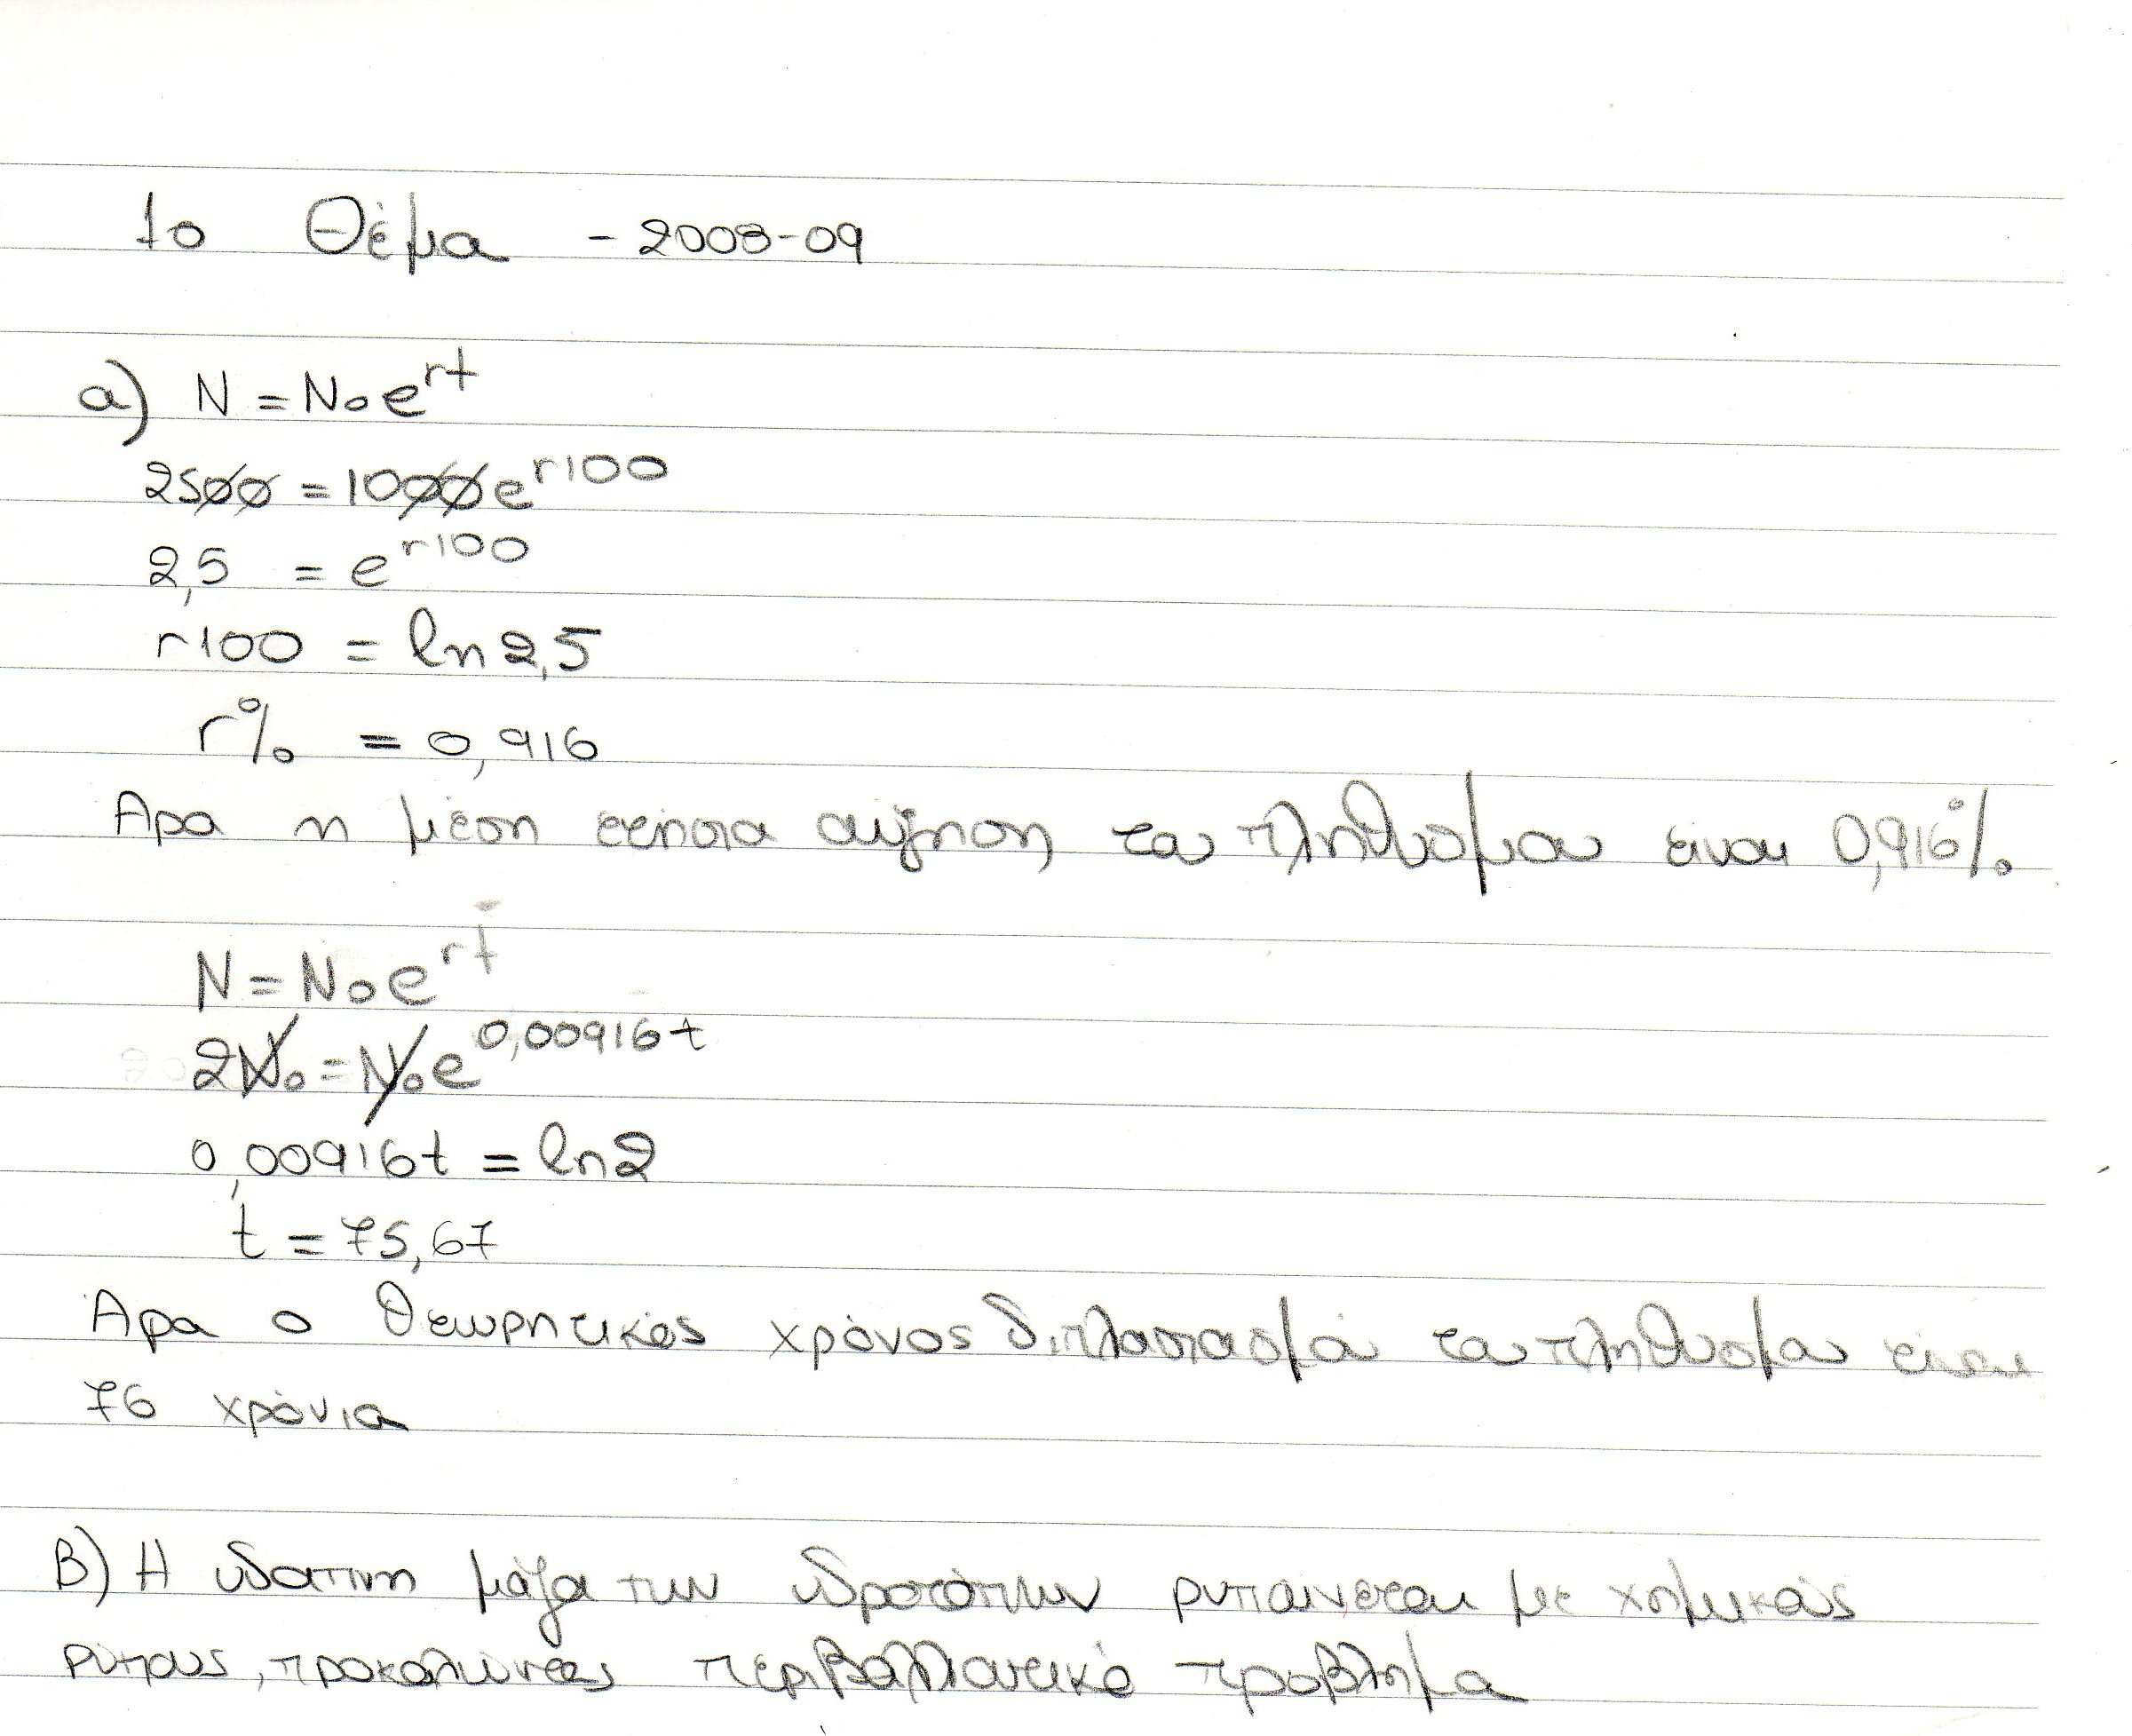 1ο Θέμα - 2008-09
α) N = N₀e^rt
2500 = 1000e^r100
2,5 = e^r100
r100 = ln2,5
r% = 0,916
Αρα η μέση ετήσια αύξηση του πληθυσμου είναι 0,916%
N = N₀e^rt
2N₀ = N₀e^0,00916t
0,00916t = ln2
t = 75,67
Αρα ο θεωρητικός χρόνος διπλασιασμού του πληθυσμου είναι
76 χρόνια
Β) Η υδατινη μάζα των υδροτόπων ρυπαίνεται με χημικούς
ρύπους, προκαλώντας περιβαλλοντικό προβλημα